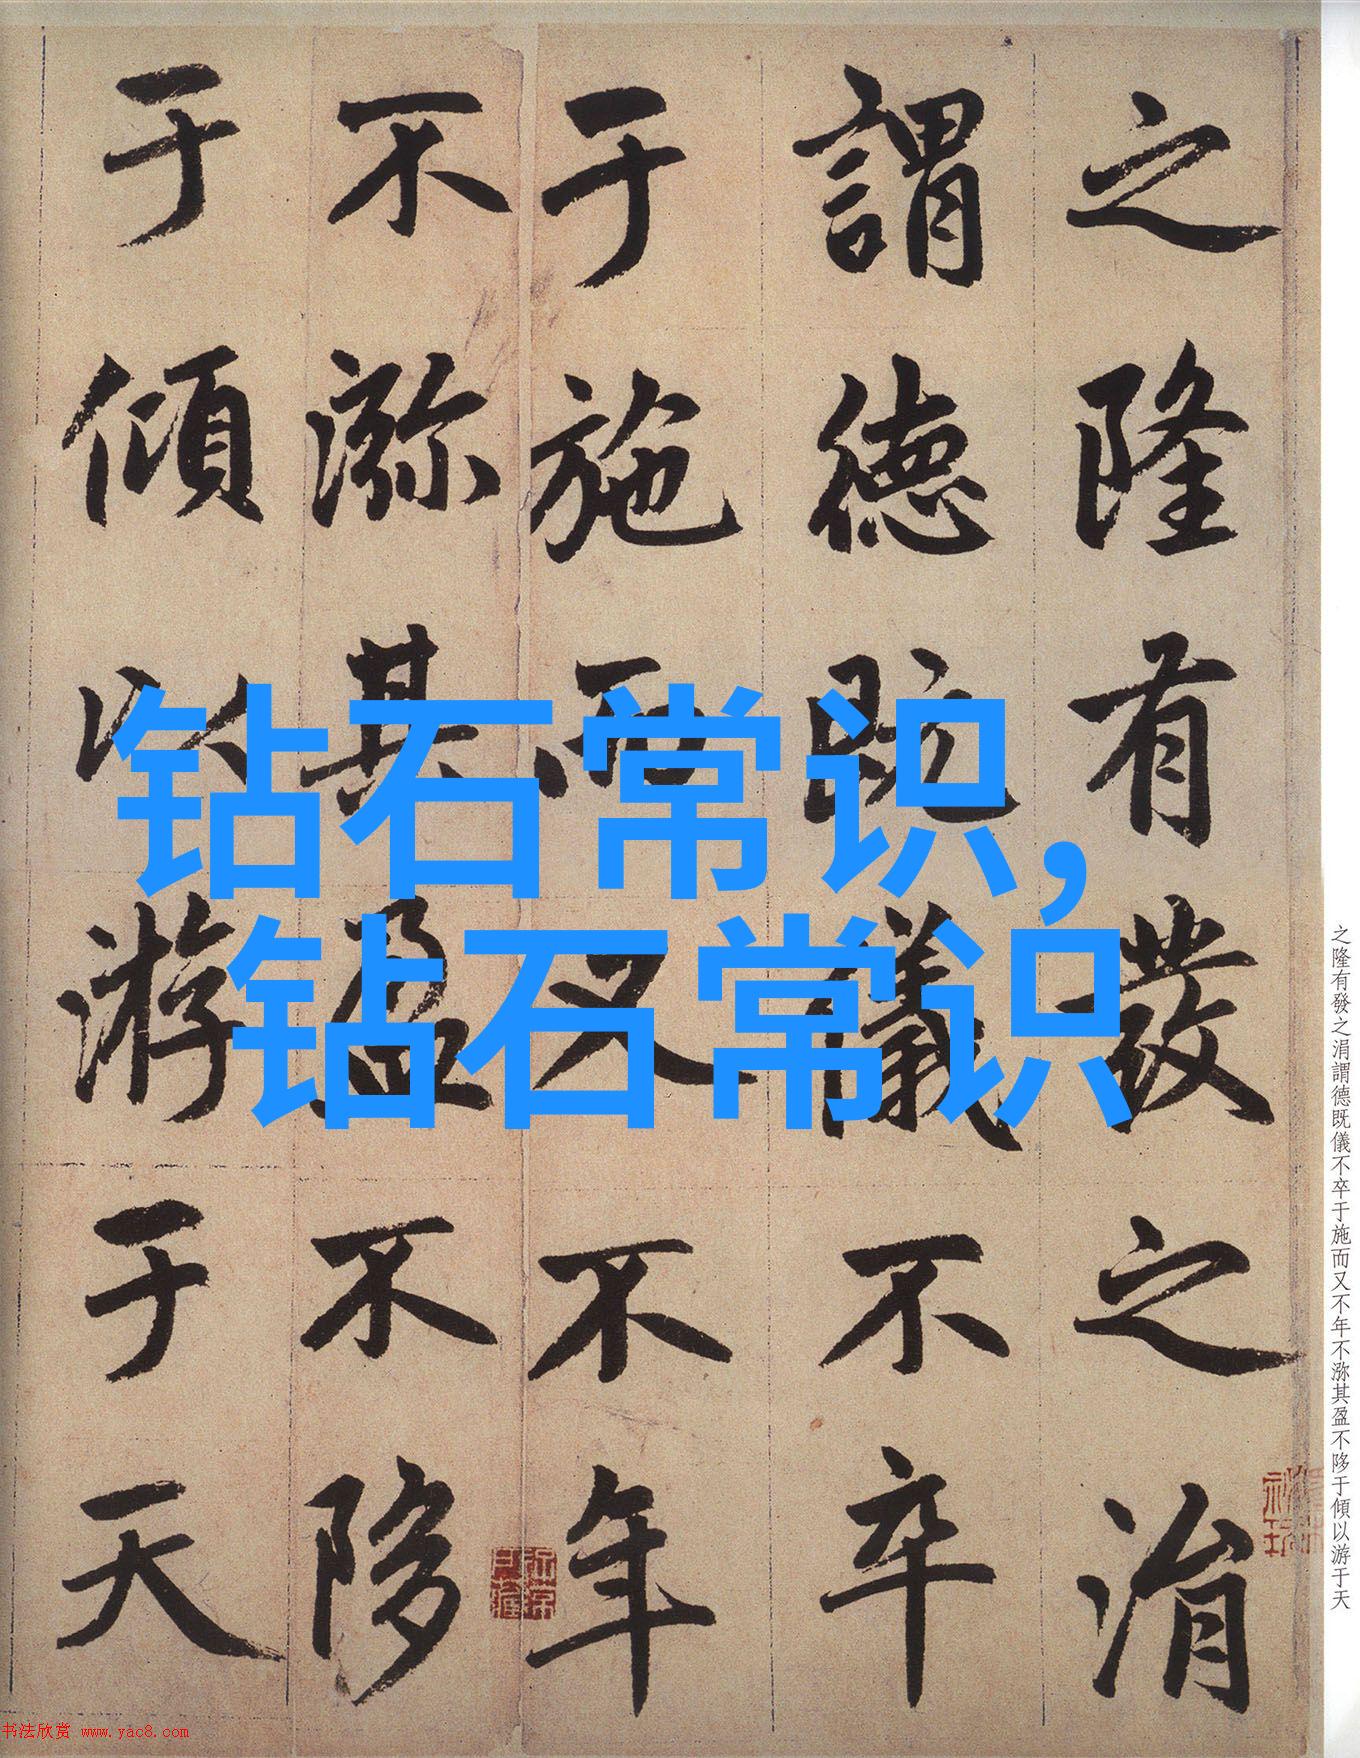 钻石常识,
钻石常识
之隆有發之涓
謂德既儀不卒
于施而又不年
不沵其盈不陊
于傾以游于天
之隆有發之涓謂德既儀不卒于施而又不年不沵其盈不陊于傾以游于天
书法欣赏 www.yac8.com